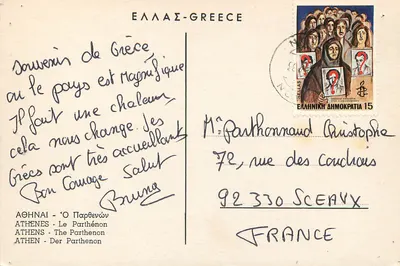 ΕΛΛΑΣ-GREECE
Souvenir de Grèce
ou le pays est Magnifique
Il fait une chaleur
cela nous change. Les
Grecs sont très accueillants
Bon Courage Salut
Bruno
ΑΘΗΝΑΙ - Ὁ Παρθενών
ATHENES - Le Parthénon
ATHENS - The Parthenon
ATHEN - Der Parthenon
ΕΛΛΗΝΙΚΗ ΔΗΜΟΚΡΑΤΙΑ 15
Mr Parthonnaud Christophe
72, rue des Coudrais
92 330 SCEAUX
FRANCE